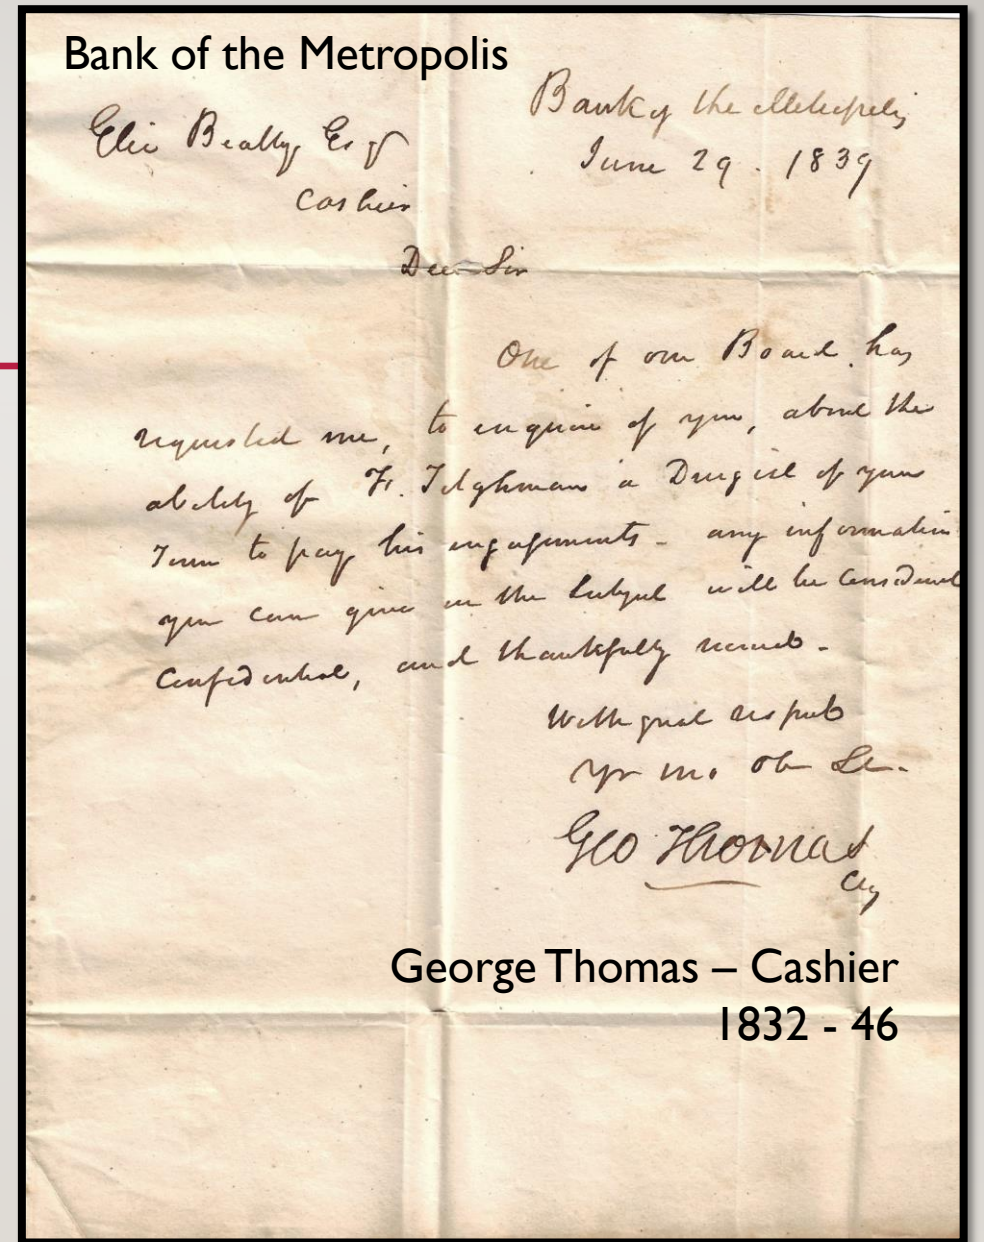 Bank of the Metropolis
Bank of the Metropolis
June 29. 1839
Elie Beatty, Esqr
Cashier
Dear Sir
One of our Board has
requested me, to enquire of you, about the
ability of Fr. Tilghman a Drugist of your
Town to pay his engagements - any information
you can give on the Subject will be Considered
Confidential, and thankfully received -
With great respect
Yr mo Ob Se.
Geo Thomas
George Thomas – Cashier
1832 - 46